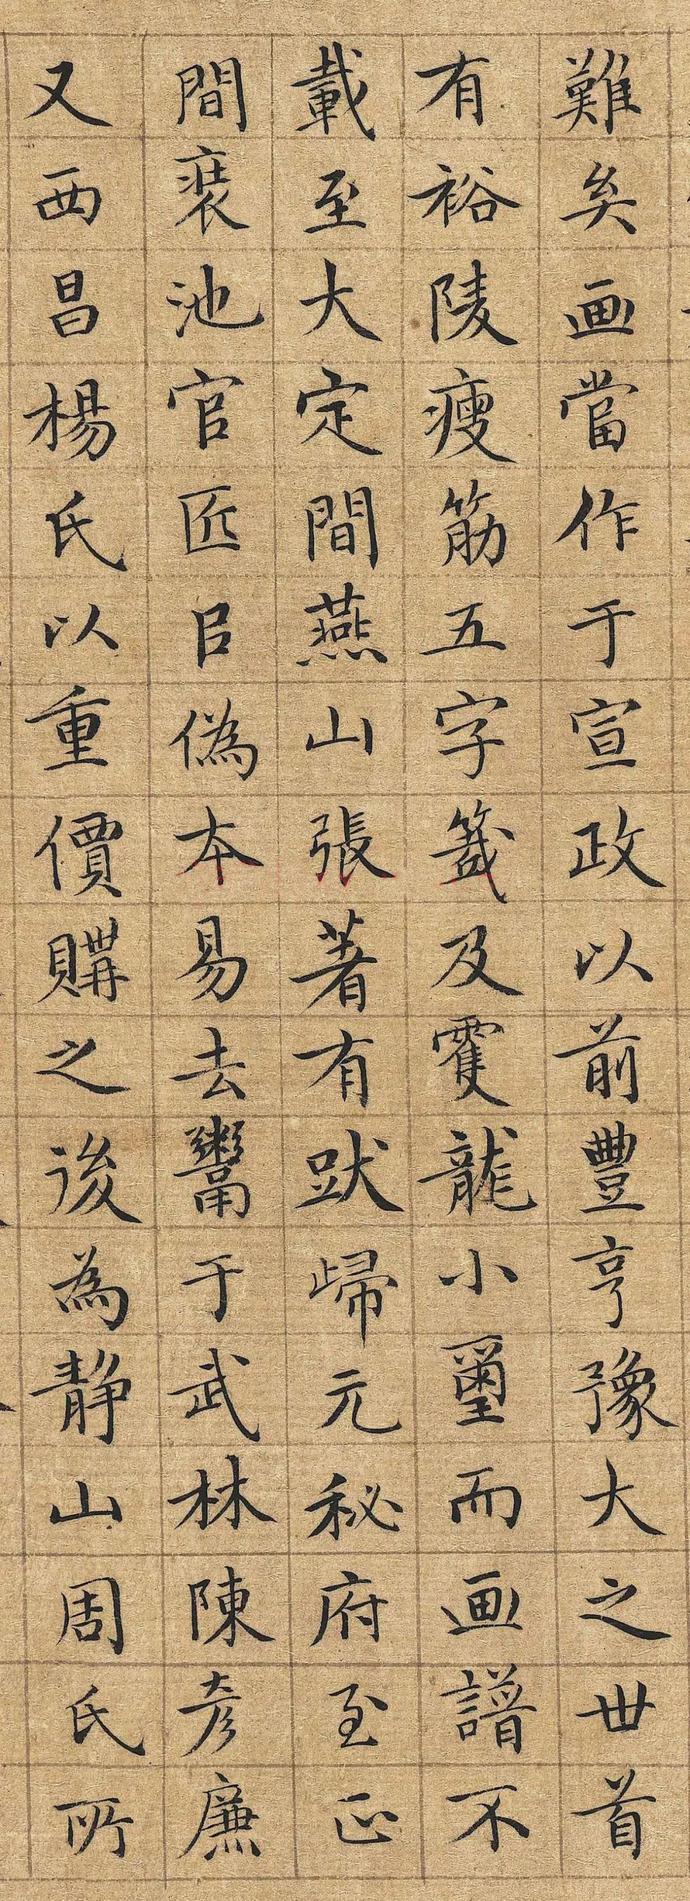 難矣画當作于宣政以前豐亨豫大之世首
有裕陵瘦筋五字籖及雙龍小璽而画譜不
載至大定間燕山張著有跋歸元秘府至正
間裴池官匠㠯偽本易去鬻于武林陳彦廉
又西昌楊氏以重價購之後為静山周氏所